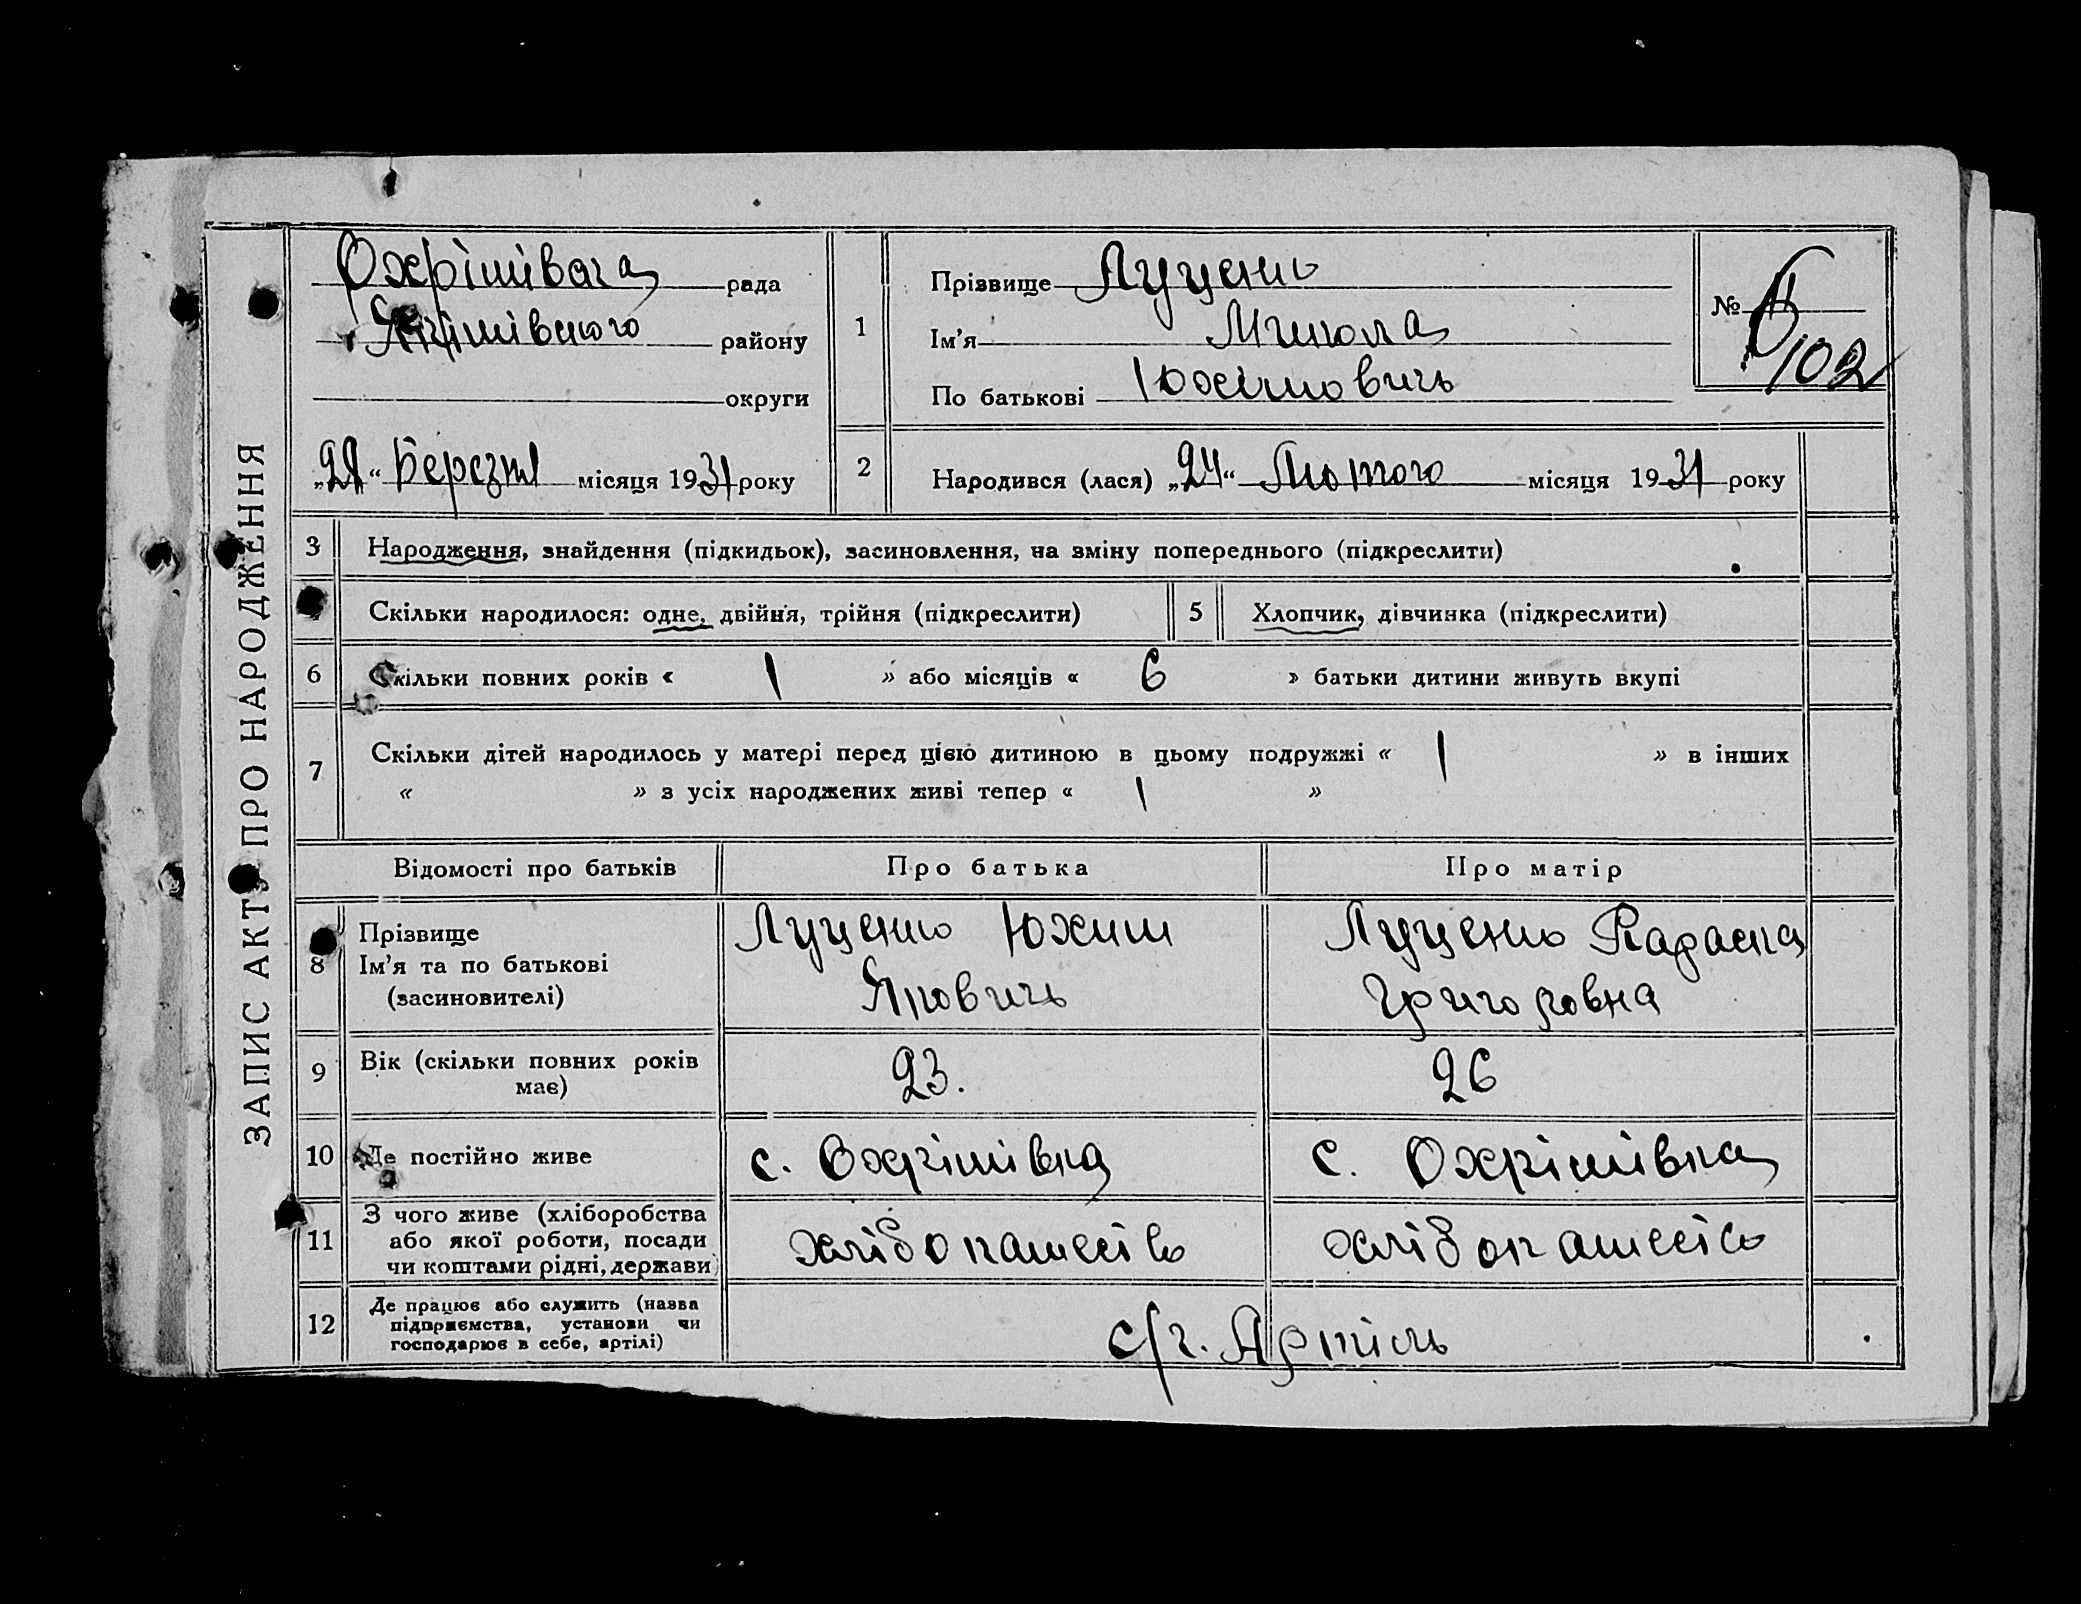 ЗАПИС АКТУ ПРО НАРОДЖЕННЯ
Охрімівська рада
Якимівського району
округи
„28“ Березня місяця 1931 року
1
Прізвище Луценко
Ім'я Микола
По батькові Юхимович
№ 102
2
Народився (лася) „24“ Лютого місяця 1931 року
3
Народження, знайдення (підкидьок), засиновлення, на зміну попереднього (підкреслити)
Скільки народилося: одне, двійня, трійня (підкреслити)
5
Хлопчик, дівчинка (підкреслити)
6
Скільки повних років « 1 » або місяців « 6 » батьки дитини живуть вкупі
7
Скільки дітей народилось у матері перед цією дитиною в цьому подружжі « 1 » в інших
« » з усіх народжених живі тепер « 1 »
Відомості про батьків
Про батька
Про матір
8
Прізвище
Ім'я та по батькові
(засиновителі)
Луценко Юхим
Якович
Луценко
Григоровна
9
Вік (скільки повних років
має)
23.
26
10
Де постійно живе
с. Охрімівка
с. Охрімівка
11
З чого живе (хліборобства
або якої роботи, посади
чи коштами рідні, держави
хлібопашеств
хлібопашеств
12
Де працює або служить (назва
підприємства, установи чи
господарює в себе, артілі)
с/г. Артіль